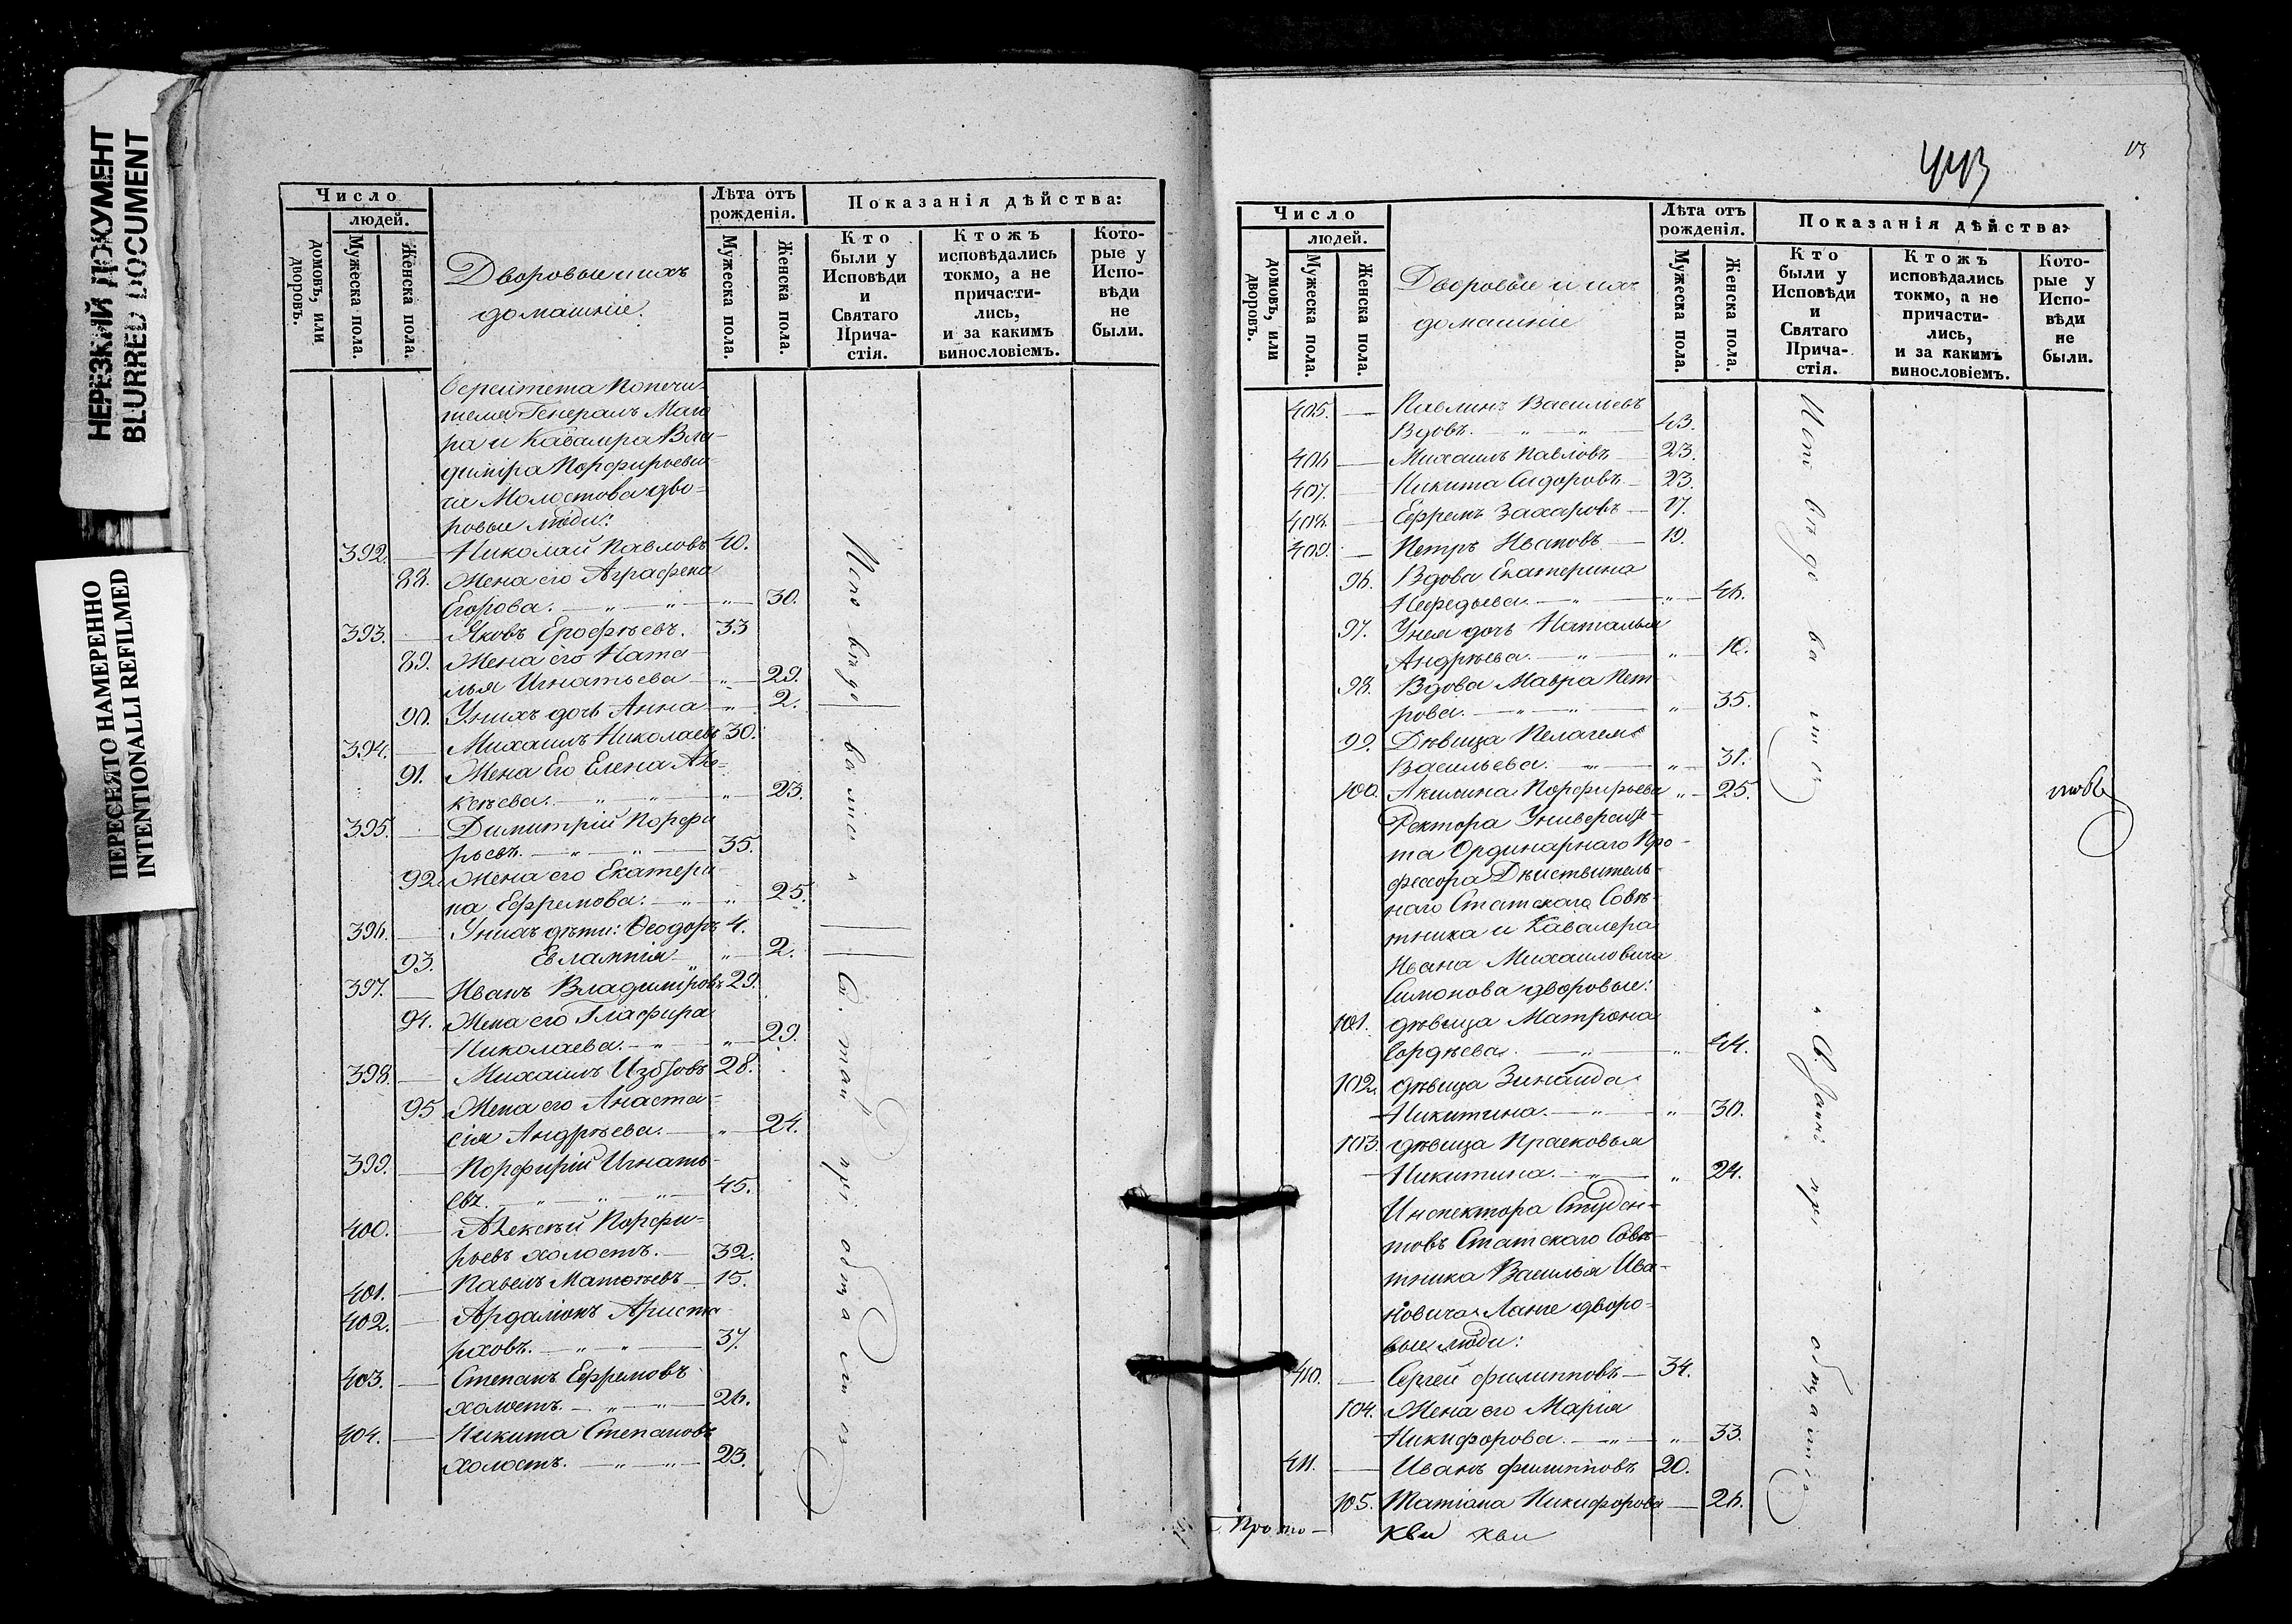 НЕРЕЗКИЙ ДОКУМЕНТ
BLURRED DOCUMENT
ПЕРЕСНЯТО НАМЕРЕННО
INTENTIONALLI REFILMED
Число
людей.
домовъ, или дворовъ.
Мужеска пола.
Женска пола.
Дворовые и ихъ
домашніе.
Лѣта отъ рожденія.
Мужеска пола.
Женска пола.
Показанія дѣйства:
Кто были у Исповѣди и Святаго Прича-стія.
Ктожъ исповѣдались токмо, а не причасти-лись, и за какимъ винословіемъ.
Кото-рые у Испо-вѣди не были.
верситета Попечи-
теля Генералъ Маіо
ра и Кавалера Вла-
диміра Порфирьеви-
ча Молостова дво-
ровые люди:
392. — Николай Павловъ 40.
88. Жена его Аграфена
Егорова. — „ — „ — „ — 30.
393. — Яковъ Ерофѣевъ. 33
89. Жена его Ната-
лья Игнатьева — „ — 29.
90. У нихъ дочь Анна — „ — 2.
394. — Михаилъ Николаевъ 30.
91. Жена Его Елена Але-
ксѣева. — „ — „ — „ — 23.
395. — Димитрій Порфи
рьевъ. — „ — „ — 35.
92. Жена его Екатери-
на Ефремова. — „ — „ — 25.
396. — У нихъ дѣти: Ѳеодоръ 4.
93. Евлампія — „ — 2.
397. — Иванъ Владиміровъ 29.
94. Жена его Глафира
Николаева. — „ — „ — 29.
398. — Михаилъ 28.
95 Жена его Анаста-
сія Андрѣева. — „ — 24.
399. — Порфирій Игнать-
евъ. — „ — „ — „ — 45.
400. — Алексѣй Порфи-
рьевъ холостъ. — 32.
401. — Павелъ Матвѣевъ — 15.
402. — Ардаліонъ Ариста
рховъ. — „ — „ — 37.
403. — Степанъ Ефремовъ
холостъ. — „ — „ — 26.
404. — Никита Степановъ
холостъ. — „ — „ — 23.
443
13
Число
людей.
домовъ, или дворовъ.
Мужеска пола.
Женска пола.
Дворовые и ихъ
домашніе
Лѣта отъ рожденія.
Мужеска пола
Женска пола.
Показанія дѣйства:
Кто были у Исповѣди и Святаго Прича-стія.
Ктожъ исповѣдались токмо, а не причасти-лись, и за какимъ винословіемъ.
Кото-рые у Испо-вѣди не были.
405. — Павлинъ Васильевъ
Вдовъ. — „ — „ — 43.
406 — Михаилъ Павловъ 23.
407. — Никита Сидоровъ — 23.
408. — Ефремъ Захаровъ — 17.
409. — Петръ Ивановъ — 19.
96. Вдова Екатерина
Нефедьева. — „ — „ — 46.
97. У нея дочь Наталья
Андрѣева. — „ — „ — 10.
98. Вдова Мавра Пет-
рова. — „ — „ — „ — 35.
99. Дѣвица Пелагея
Васильева. — „ — „ — 31.
100. Акилина Порфирьева „ — 25.
Ректора Университе-
та Ординарнаго Про-
фессора Дѣйствитель-
наго Статскаго Совѣ-
тника и Кавалера
Ивана Михаиловича
Симонова дворовые:
101. дѣвица Матрона
Гордѣева. — „ — „ — 44.
102. дѣвица Зинаида
Никитина. — „ — „ — 30.
103. дѣвица Прасковья
Никитина. — „ — „ — 24.
Инспектора Студен-
товъ Статскаго Совѣ-
тника Василья Ива-
новича Ланге дворо-
вые люди:
410. — Сергей Филипповъ — 34.
104. Жена его Марія
Никифорова. — „ — „ — 33.
411. — Иванъ Филипповъ 20.
105. Татіана Никифорова — 26.